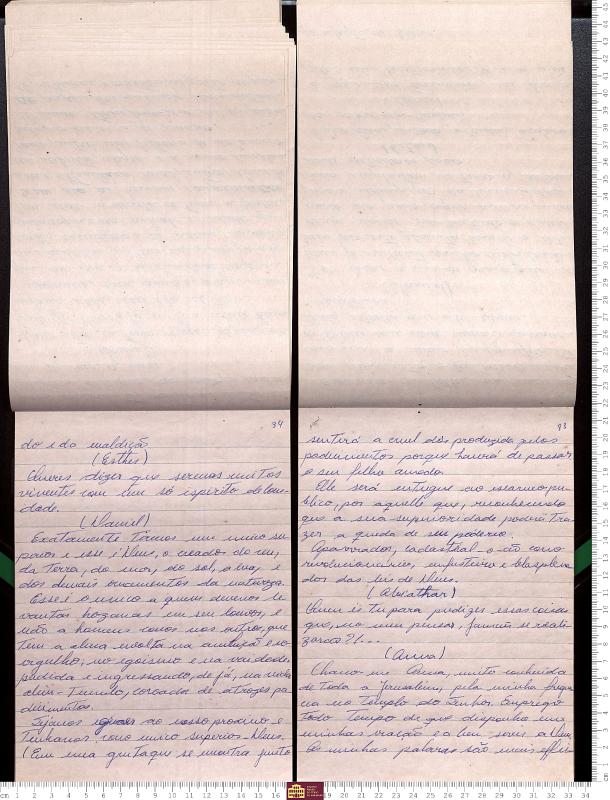 34
do e da maldição
(Esther)
Queres dizer que seremos muitos
viventes com um só espirito de
dade.
(Daniel)
Exatamente temos um unico su
perior e esse é Deus, o creador do ceu,
da terra, do mar, do sol, a lua, e
dos demais ornamentos da natureza.
Esse é o unico a quem devemos le
vantar hozanas em seu louvor, e
não a homens como nós outros, que
tem a alma envolta na ambição e no
orgulho, no egoismo e na vaidade,
perdida e ingressando, de já, na
alem-Tumulo, cercados de atrozes pa
decimentos.
Sejamos iguaes ao nosso proximo e
tenhamos como unico superior - Deus.
(Em uma gruta que se mostra junto
93
sentirá a cruel dôr produzida pelos
padecimentos porque haverá de passar
o seu filho amado.
Elle será entregue ao escarneo pu
blico, por aquelle que, reconhecendo
que a sua superioridade poderá tra
zer a queda de seu poderio.
Apavorados, cadastral-o-ão como
revolucionario, impostor e blasphema
dor das leis de Deus.
(Abiathar)
Quem és tu para predizer essas coisas
que, no meu pensar, jamais se reali
zarão?!...
(Anna)
Chamo-me Anna, muito conhecida
de toda a Jerusalem, pela minha frequen
cia no Templo do Senhor. Emprego
todo tempo de que disponho em
minhas oração e a bem servir a Deus.
As minhas palavras são meus